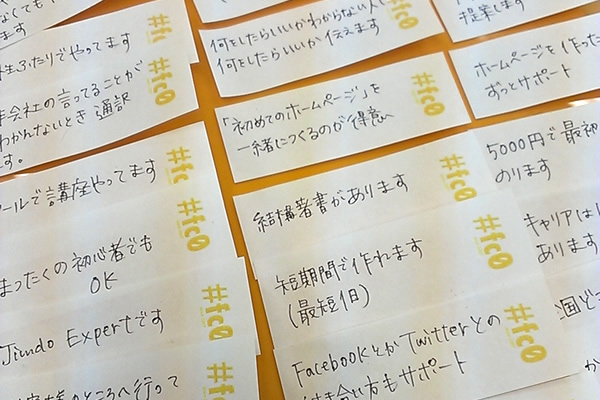 なくても
ます
#fc
生ふたりでやってます
#fc0
会社の言ってることが
わかんないとき 通訳
ます。
#fc
ールで講座やってます
#fc0
まったくの初心者でも
OK
#fc0
Jimdo Expertです
#fc0
のところへ行って
#fc0
何をしたらいいかわからない人に
何をしたらいいか伝えます
#fc0
「初めてのホームページ」を
一緒につくるのが得意
#fc0
結構著書があります
#fc0
短期間で作れます
(最短1日)
#fc0
FacebookとかTwitterとの
付き合い方もサポート
提案します
ホームページを作った
ずっとサポート
5000円で最初
のります
キャリアは
あります
国ど
か